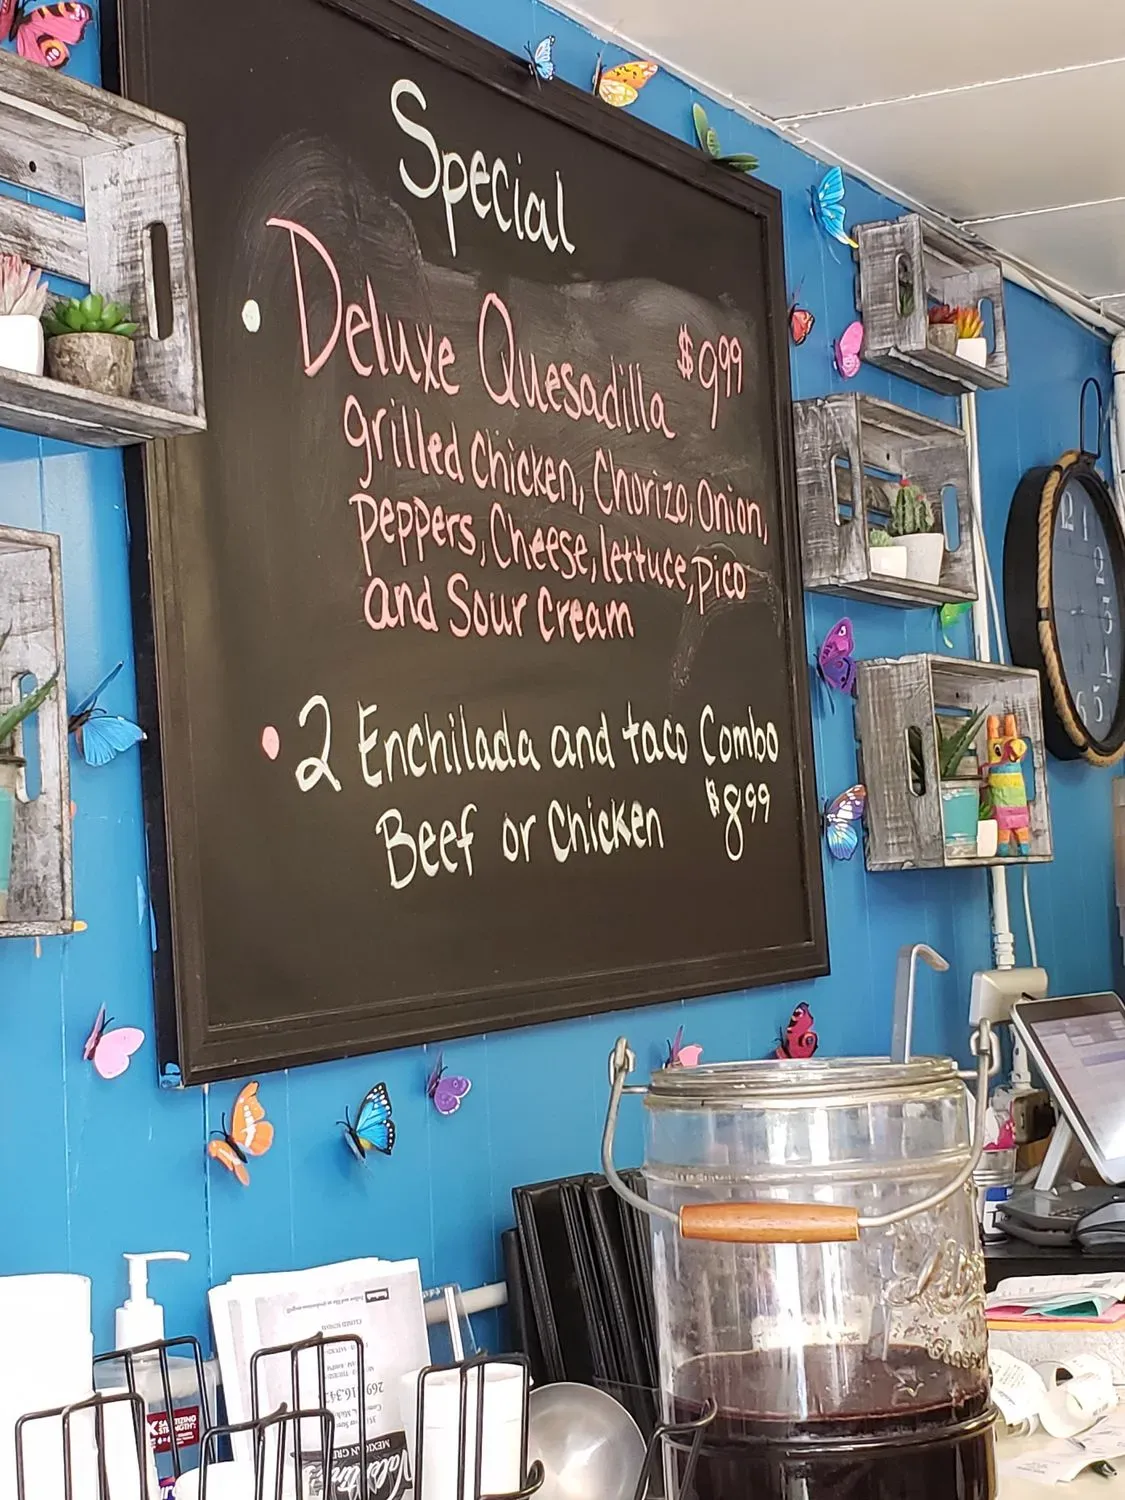 Special
Deluxe Quesadilla $9.99
grilled chicken, Chorizo, Onion,
peppers, Cheese, lettuce, pico
and Sour Cream
2 Enchilada and taco Combo
Beef or Chicken $8.99
12
1
CLOSED SUNDAY
MEXICAN GRILL